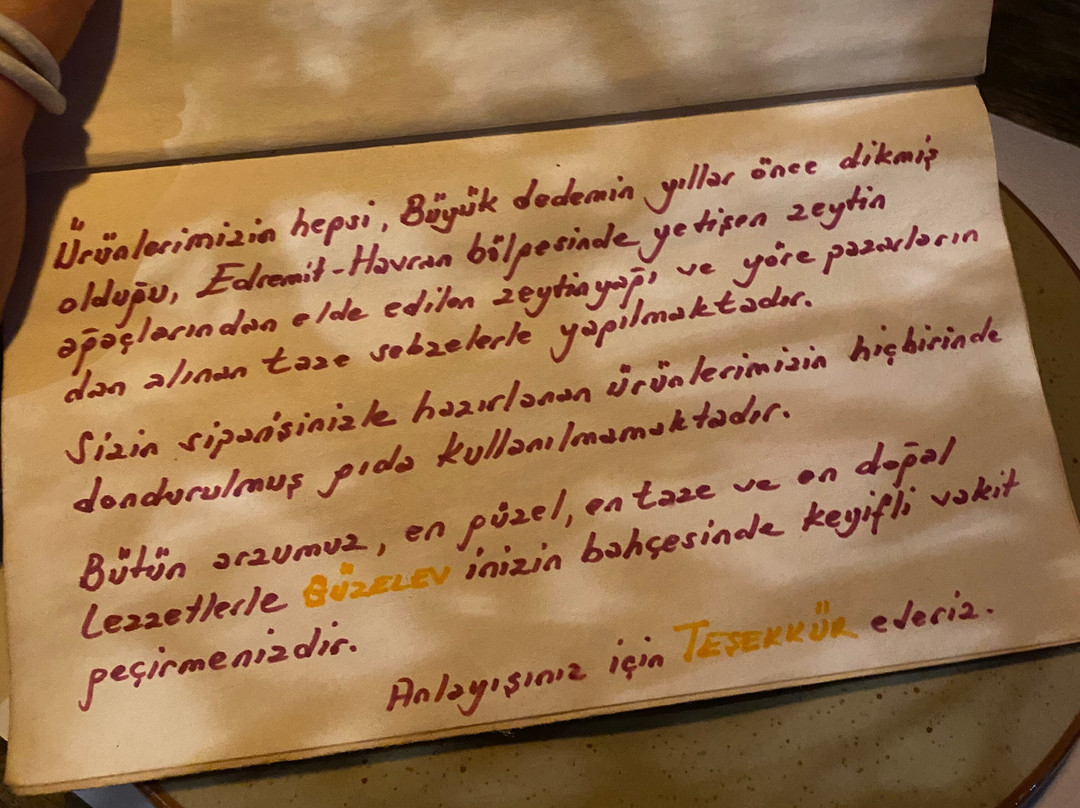 Ürünlerimizin hepsi, Büyük dedemin yıllar önce dikmiş
olduğu, Edremit-Havran bölgesinde yetişen zeytin
ağaçlarından elde edilen zeytinyağı ve yöre pazarların
dan alınan taze sebzelerle yapılmaktadır.
Sizin siparişinizle hazırlanan ürünlerimizin hiçbirinde
dondurulmuş gıda kullanılmamaktadır.
Bütün arzumuz, en güzel, en taze ve en doğal
Lezzetlerle GÜZELEV inizin bahçesinde keyifli vakit
geçirmenizdir.
Anlayışınız için TEŞEKKÜR ederiz.